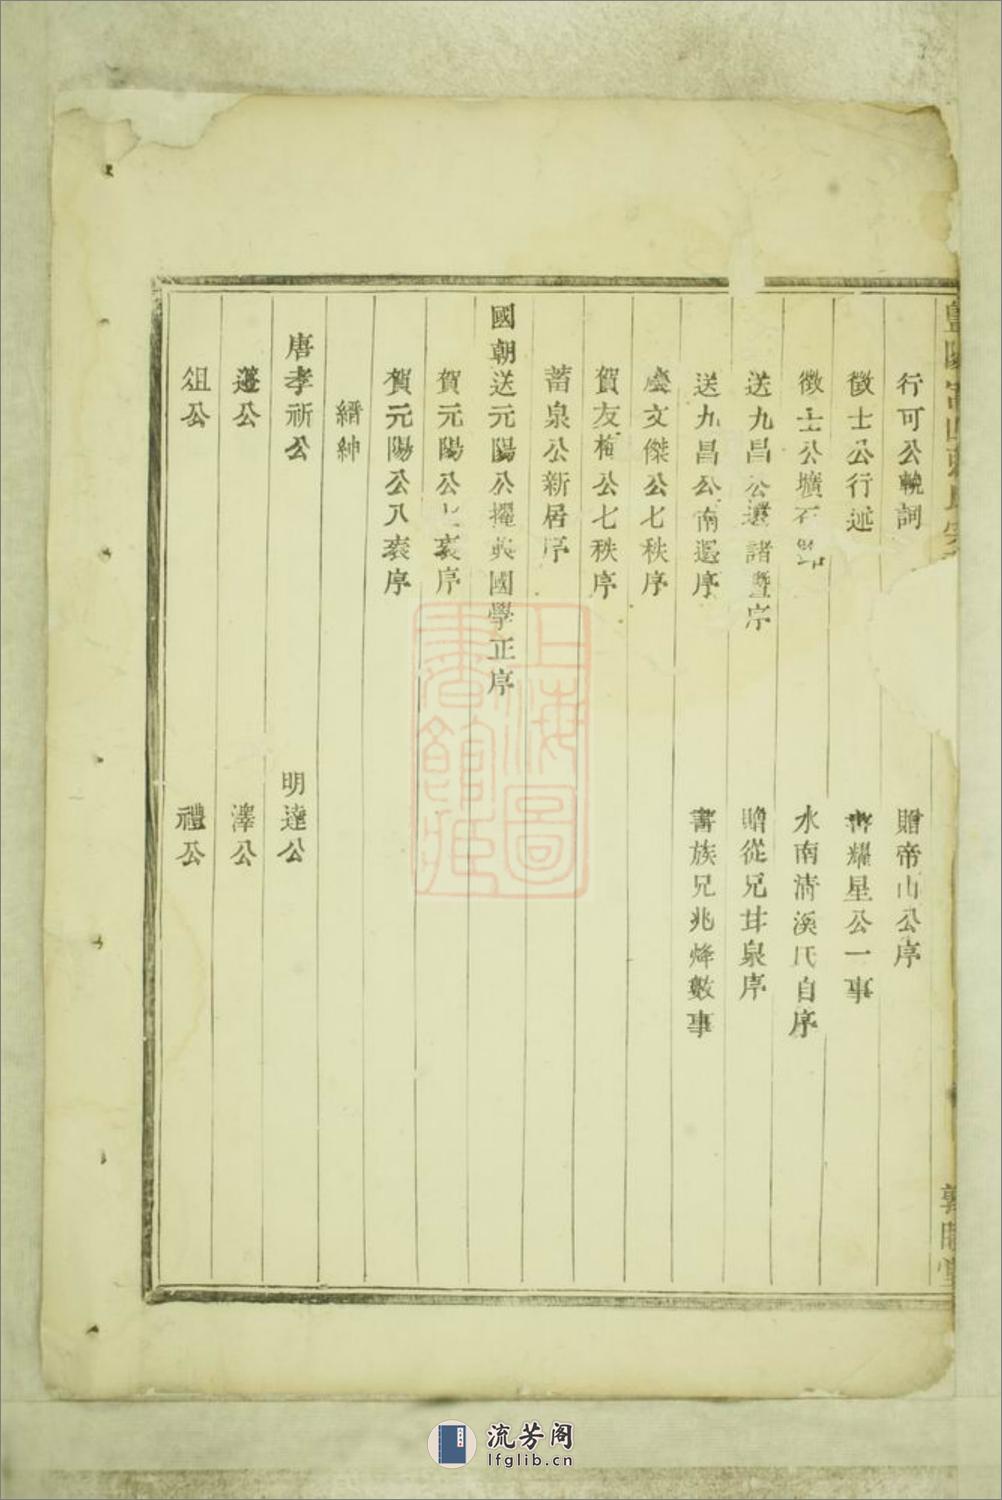 行可公輓詞
贈帝山公序
徵士公行述
書耀星公一事
徵士公壙石
水南清溪氏自序
送九昌公還諸暨序
贈從兄甘泉序
送九昌公南還序
書族兄兆烽數事
文傑公七秩序
賀友梅公七秩序
蓄泉公新居序
國朝送元陽公擢英國學正序
賀元陽公七袠序
賀元陽公八袠序
縉紳
唐孝祈公
明達公
蓬公
澤公
俎公
禮公
上海圖書館藏
流芳阁
lfglib.cn